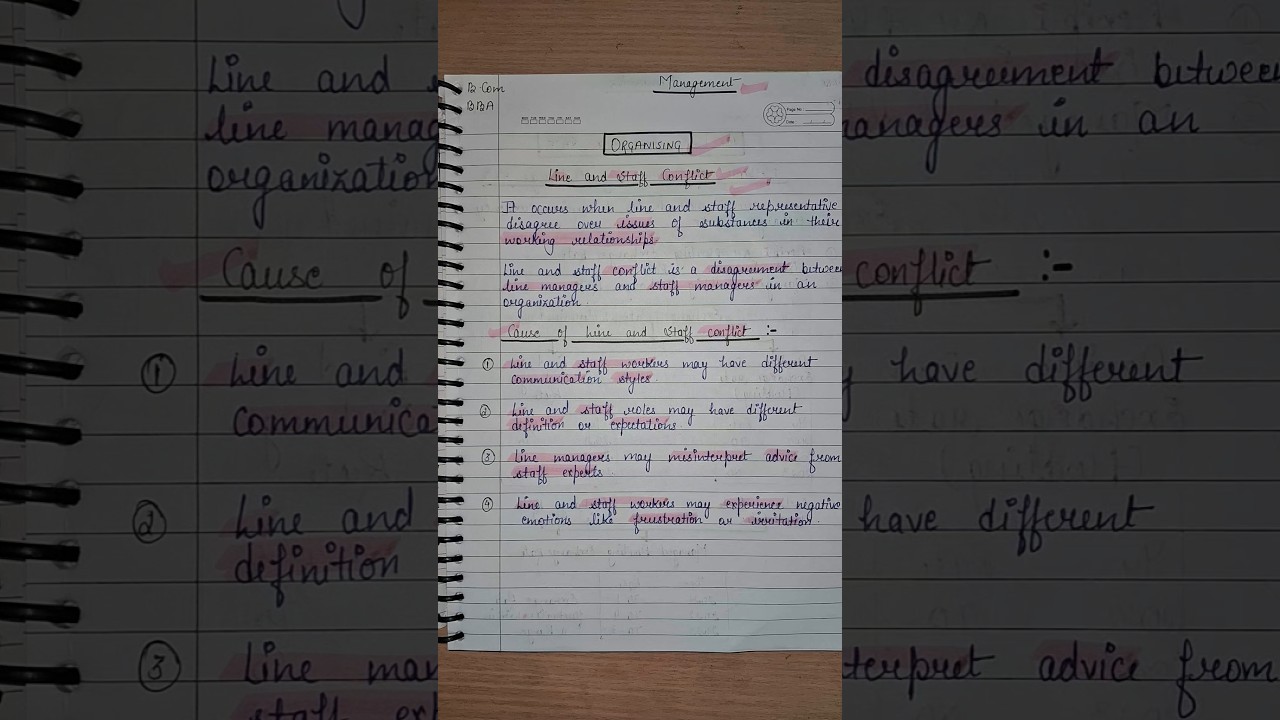 Management
B.Com
BBA
Page No.
Date
ORGANISING
Line and Staff Conflict
It occurs when line and staff representative
disagree over issues of substances in their
working relationships.
Line and staff conflict is a disagreement between
line managers and staff managers in an
organization.
Cause of Line and Staff conflict :-
① Line and staff workers may have different
communication styles.
② Line and staff roles may have different
definition or expectations
③ Line managers may misinterpret advice from
staff experts
④ Line and staff workers may experience negative
emotions like frustration or irritation.